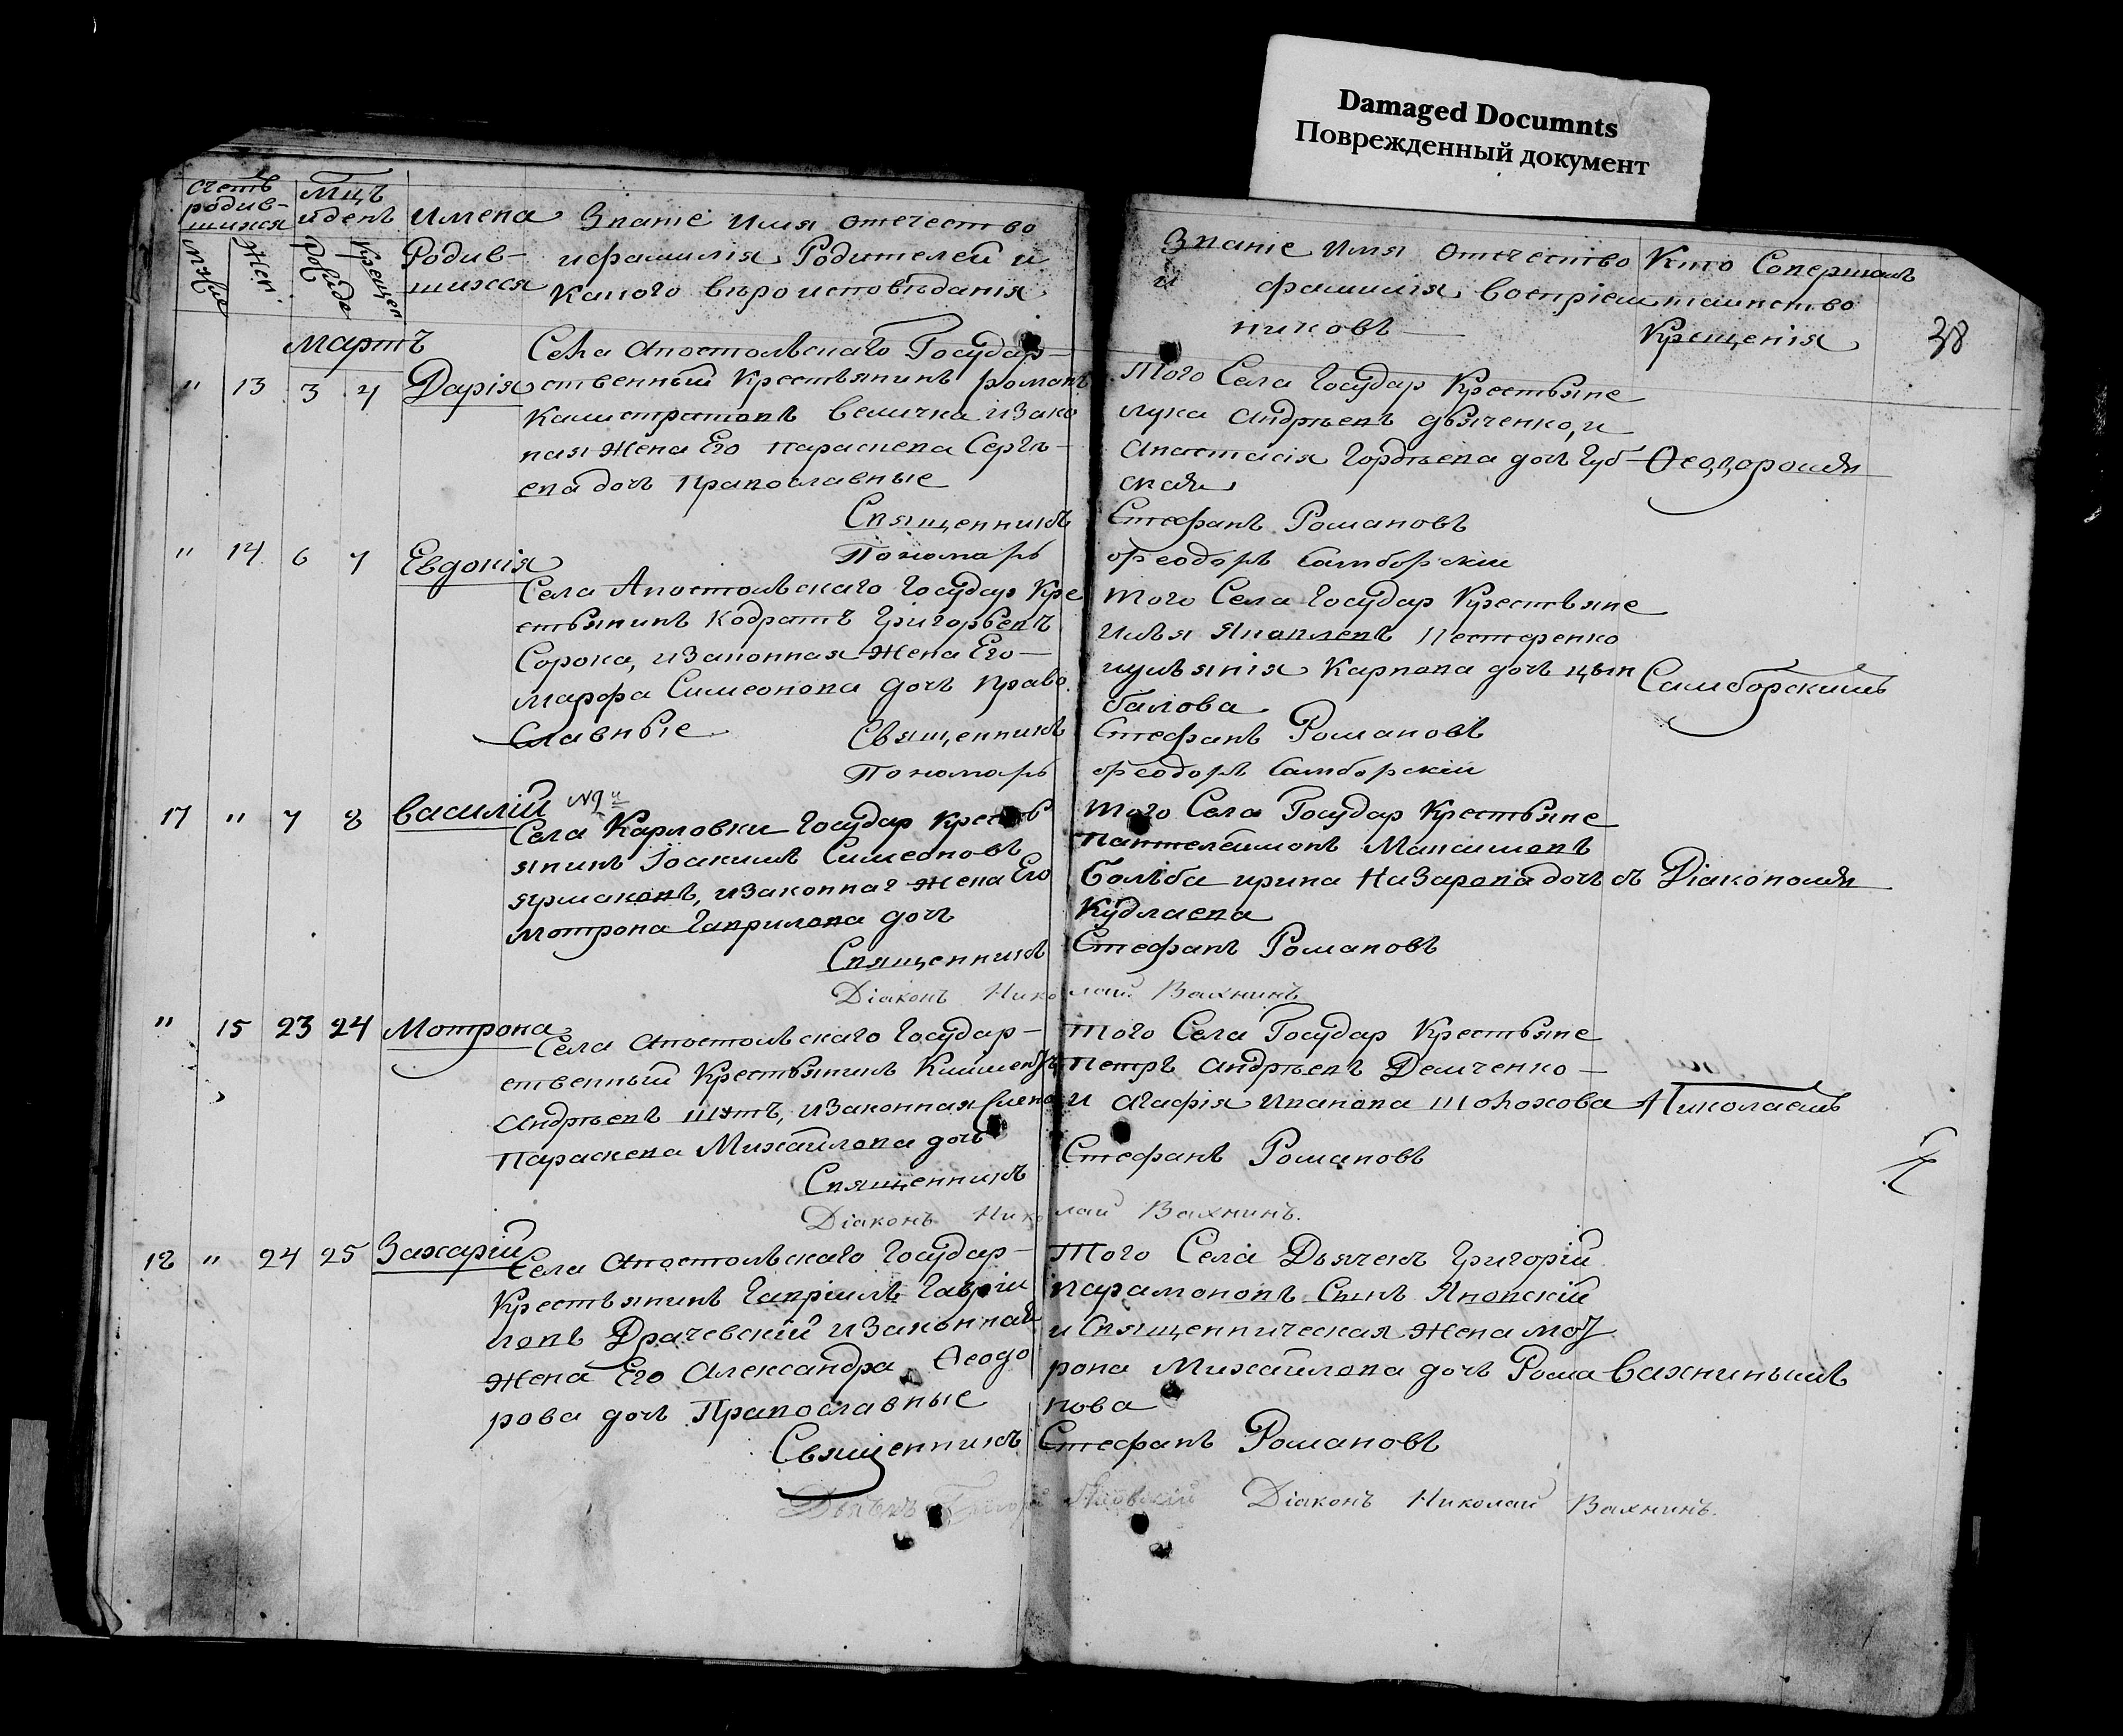 Damaged Documnts
Поврежденный документ
счетъ родив-шихся
Мцъ и день
Имена Родив-шихся
Званіе Имя отечество
и фамилія Родителей и
Какого вѣроисповѣданія
Званіе Имя Отчество
и фамилія воспріем
никовъ
Кто Совершалъ
таинство
Крещенія
38
Мартъ
" 13 3 4 Дарія
Села Апостольскаго Государ-
ственный Крестьянинъ романъ
Калистратовъ Величка и Зако
ная Жена Его параскева Сергѣ-
ева дочь Православные
Того Села Государ Крестьяне
лука Андрѣевъ дьяченко, и
Анастасія Гордѣева дочь Губ-
ская
Священникъ Стефанъ Романовъ
Пономарь феодоръ Самборскій
" 14 6 7 Евдокія
Села Апостольскаго Государ Кре
стьянинъ Кодратъ Григорьевъ
Сорока, и Законная Жена Его
марфа Симеонова дочь Право
Славные
Того Села Государ Крестьяне
Илья Яковлевъ Нестеренко
иульянія Карпова дочь цын
балова
Самборскимъ
Священникъ Стефанъ Романовъ
Пономарь феодоръ Самборскій
17 " 7 8 Василій
Села Карловки Государ Кресть
янинъ Іоакимъ Симеоновъ
ярмаковъ, и Законная Жена Его
мотрона Гаврилова дочь
Того Села Государ Крестьяне
Пантелеимонъ Максимовъ
Больба ирина Назарова дочь
Кудлаева
съ Діакономъ
Священникъ Стефанъ Романовъ
Діаконъ Николай Вахнинъ
" 15 23 24 Мотрона
Села Апостольскаго Государ-
ственный Крестьянинъ
Андрѣевъ и Законная
Параскева Михайлова дочь
Того Села Государ Крестьяне
Петръ Андрѣевъ Демченко
и Агафія Иванова
Николаемъ
Священникъ Стефанъ Романовъ
Діаконъ Николай Вахнинъ.
18 " 24 25 Захарій
Села Апостольскаго Государ-
Крестьянинъ Гавріилъ Гавріи
ловъ Драчевскій и Законная
Жена Его Александра Ѳеодо
рова дочь Православные
Того Села Дьячекъ Григорій
Парамоновъ Сынъ Яновскій
и Священническая Жена мот
рона Михайлова дочь Рома
нова
Вахнинымъ
Священникъ Стефанъ Романовъ
Діаконъ Николай Вахнинъ.